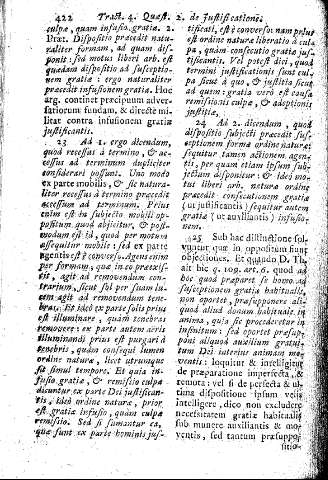 422 Tract. 4. Quæst. 2. de Justificatione.
culpæ, quam infusio gratiæ. 2.
Præt. Dispositio præcedit natu-
raliter formam, ad quam dis-
ponit: sed motus liberi arb. est
quædam dispositio ad susceptio-
nem gratiæ: ergo naturaliter
præcedit infusionem gratiæ. Hoc
arg. continet præcipuum adver-
sariorum fundam. & directe mi-
litat contra infusionem gratiæ
justificantis.
23 Ad 1. ergo dicendum,
quod recessus à termino, & ac-
cessus ad terminum dupliciter
considerari possunt. Uno modo
ex parte mobilis, & sic natura-
liter recessus à termino præcedit
accessum ad terminum. Prius
enim est in subjecto mobili op-
positum, quod abjicitur, & post-
modum est id, quod per motum
assequitur mobile: sed ex parte
agentis est è converso. Agens enim
per formam, quæ in eo præexis-
tit, agit ad removendum con-
trarium, sicut sol per suam lu-
cem agit ad removendum tene-
bras: Et ideo ex parte solis prius
est illuminare, quam tenebras
removere: ex parte autem aëris
illuminandi prius est purgari à
tenebris, quàm consequi lumen
ordine naturæ, licet utrumque
sit simul tempore. Et quia in-
fusio gratiæ, & remissio culpæ
dicuntur ex parte Dei justifican-
tis, ideo ordine naturæ, prior
est gratiæ infusio, quàm culpæ
remissio. Sed si sumantur ea,
quæ sunt ex parte hominis jus-
tificati, est è converso: nam prius
est ordine naturæ liberatio à cul-
pa, quàm consecutio gratiæ jus-
tificantis. Vel potest dici, quod
termini justificationis sunt cul-
pa, sicut à quo, & justitia sicut
ad quem: gratia verò est causa
remissionis culpæ, & adeptionis
justitiæ.
24 Ad 2. dicendum, quod
dispositio subjecti præcedit sus-
ceptionem formæ ordine naturæ:
sequitur tamen actionem agen-
tis, per quam etiam ipsum sub-
jectum disponitur: & ideo mo-
tus liberi arb. naturæ ordine
præcedit consecutionem gratiæ
(ut justificantis) sequitur autem
gratiæ (ut auxiliantis) infusio-
nem.
25 Sub hac distinctione sol-
vuntur quæ in oppositum sunt
objectiones. Et quando D. Th.
ait hic q. 109. art. 6. quod ad
hoc quod præparet se homo ad
susceptionem gratiæ habitualis,
non oportet, præsupponere ali-
quod aliud donum habituale in
anima, quia sic procederetur in
infinitum: sed oportet præsup-
poni aliquod auxilium gratui-
tum Dei interius animam mo-
ventis: loquitur & intelligitur
de præparatione imperfecta, &
remota: vel si de perfecta & ul-
tima dispositione ipsum velis
intelligere, dico non excludere
necessitatem gratiæ habitualis
sub munere auxiliantis & mo-
ventis, sed tantum præsuppo-
sitio-